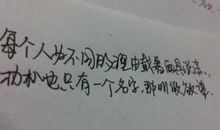 每个人为不同的理由戴着面具说谎、
动机也只有一个名字,那叫做欲望.